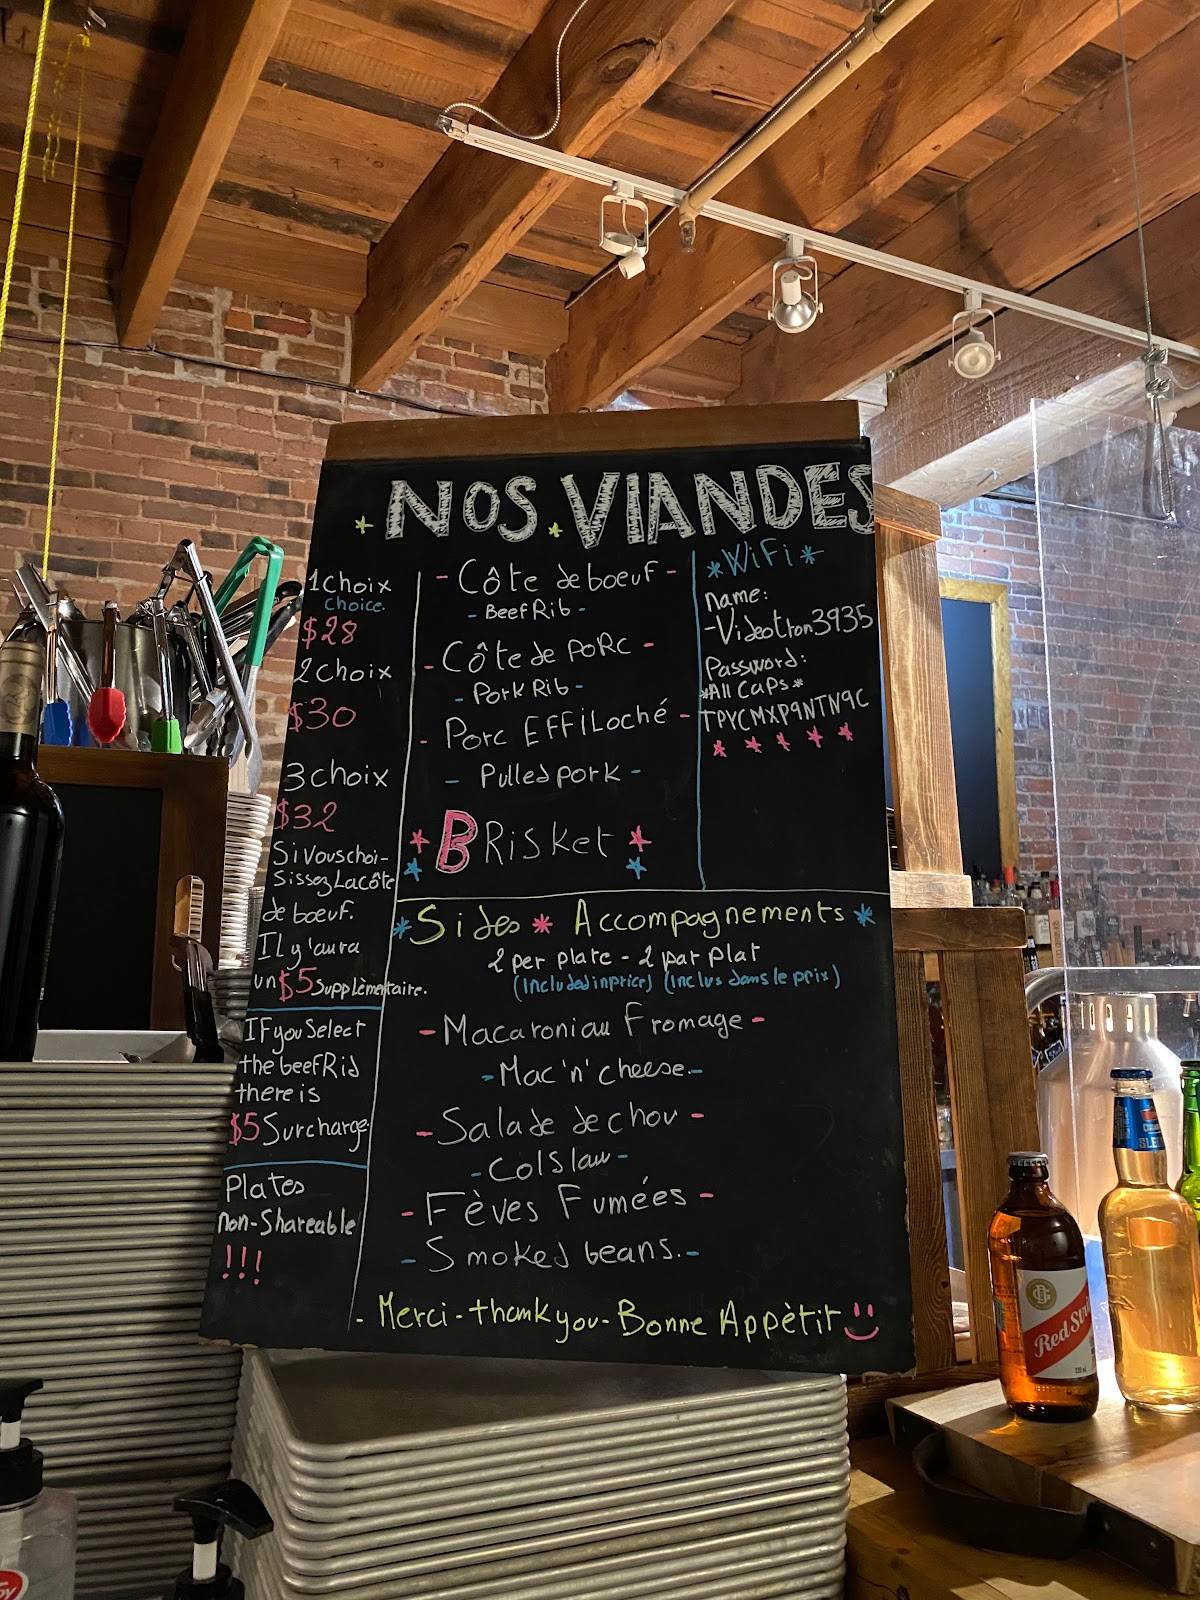 NOS VIANDES
1 choix
Choice.
$28
2 choix
$30
3 choix
$32
Si vous choi-
sissez La côte
de boeuf.
Il y'aura
un $5 supplémentaire.
IF you Select
the beef Rib
there is
$5 Surcharge.
Plates
non-Shareable
!!!
- Côte de boeuf -
- Beef Rib -
- Côte de Porc -
- Pork Rib -
- Porc Effiloché -
- Pulled pork -
* BRisket *
* WiFi *
name:
-Videotron3935
Password:
*All Caps*
TPYCMXP9NTN9C
* * * * *
* Sides * Accompagnements *
2 per plate - 2 par plat
(Included in price) (Inclus dans le prix)
- Macaroni au Fromage -
- Mac 'n' cheese. -
- Salade de chou -
- ColSlaw -
- Fèves Fumées -
- Smoked beans. -
- Merci - thank you - Bonne Appètit
Red Stri